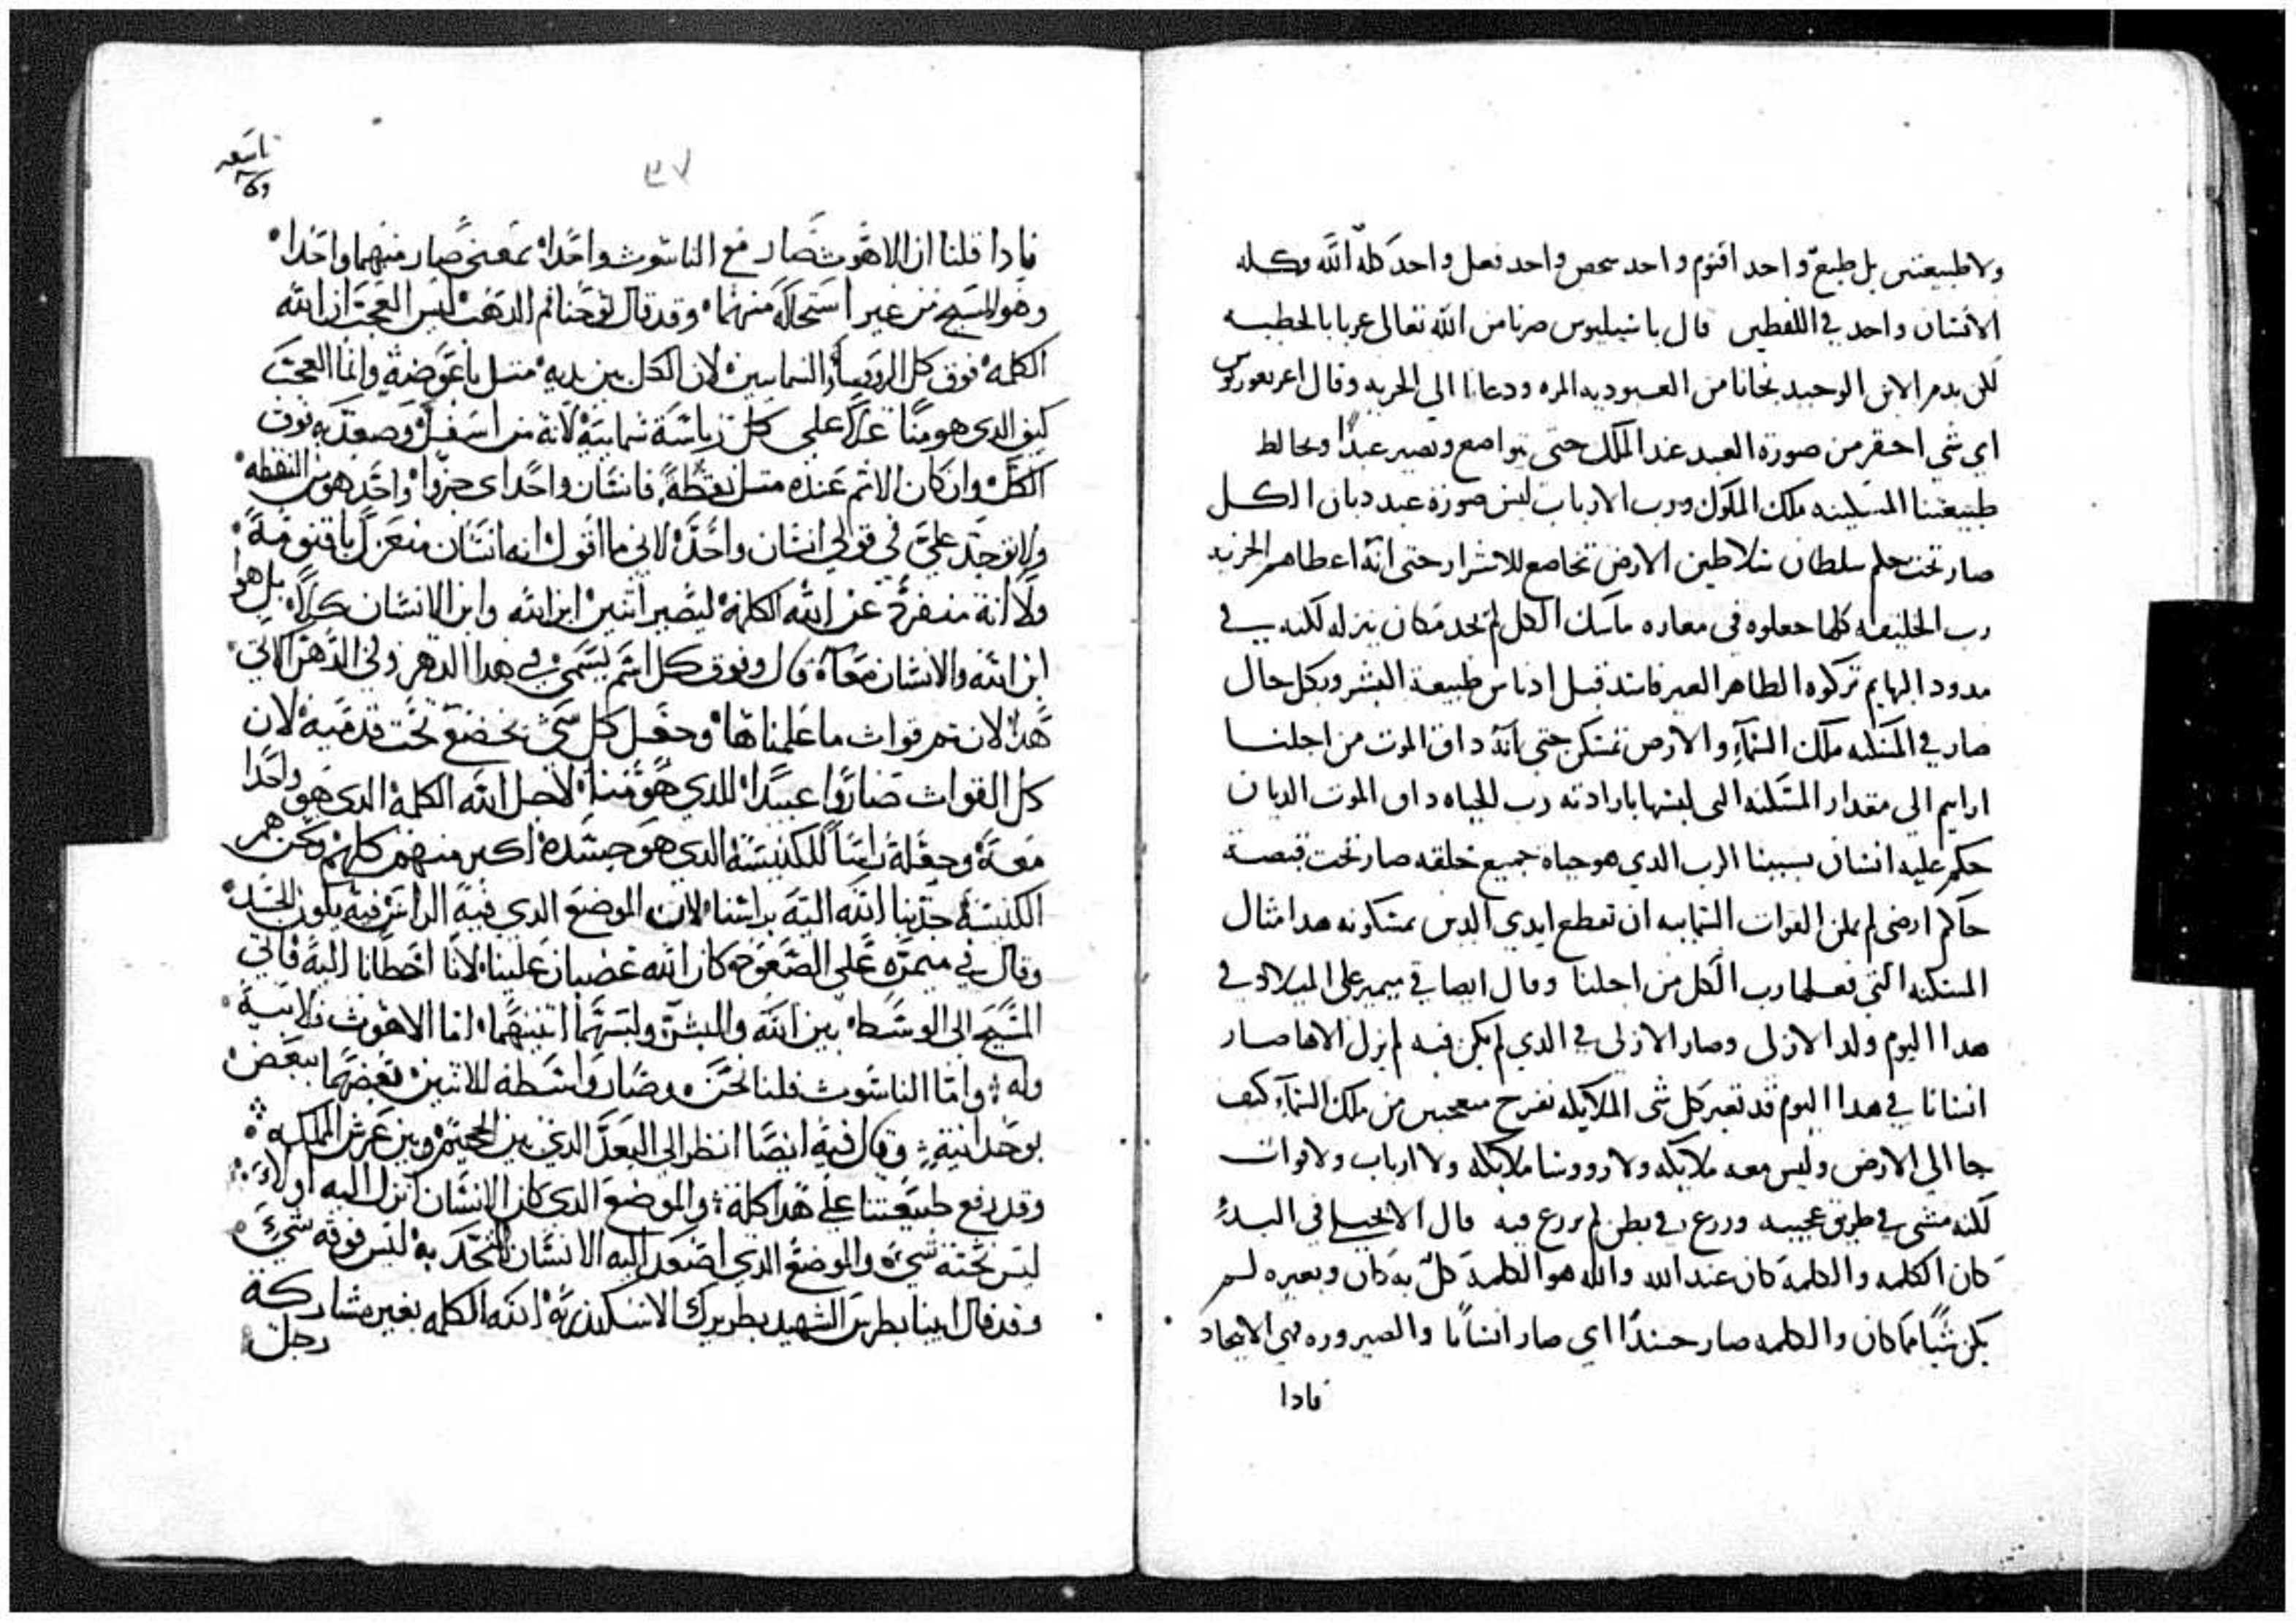 ولا طبيعتين بل طبع واحد اقنوم واحد شخص واحد فعل واحد كله الله وكله
الانسان واحد في اللفظين قال باسيليوس صرنا من الله تعالى غربا بالخطيه
لكن بدم الابن الوحيد نجانا من العبوديه المره ودعانا الى الحريه وقال اغريغوريوس
اي شي احقر من صورة العبد عند الملك حتى يتواضع ويصير عبدا ويخالط
طبيعتنا المسكينه ملك الملوك ورب الارباب لبس صورة عبد ديان الكل
صار تحت حكم سلطان سلاطين الارض تخاضع للاشرار حتى انه اعطاهم الحزيه
رب الخليقه كلها جعلوه في مغاره ماسك الكل لم تجد مكان ينزله لكنه في
مدود البهايم تركوه الطاهر الغير فاسد قبل ادناس طبيعة البشر وبكل حال
صار في المسكنه ملك السماء والارض تمسكن حتى انه داق الموت من اجلنا
ارايتم الى مقدار المسكنه التى لبسها بارادته رب الحياه داق الموت الديان
حكم عليه انسان بسببنا الرب الدي هو حياه جميع خلقه صار تحت قبضة
حاكم ارضى لم يمكن القوات السماييه ان تقطع ايدي الدين يمسكونه هدا مثال
المسكنه التي فعلها رب الكل من اجلنا وقال ايضا في ميمر على الميلاد في
هدا اليوم ولد الازلى وصار الازلى في الدي لم يكن فيه لم يزل الاها صار
انسانا في هدا اليوم قد تغير كل شى الملايكه تفرح متعجبين من ملك السماء كيف
جا الى الارض وليس معه ملايكه ولا رووسا ملايكه ولا ارباب ولا قوات
لكنه مشى في طريق عجيبه وزرع في بطن لم يزرع فيه قال الانجيل في البدء
كان الكلمه والكلمة كان عند الله والله هو الكلمة كل به كان وبغيره لم
يكن شيا مما كان والكلمه صار جسدا اي صار انسانا والصيروره هي الاتحاد
فادا
تاسعه
٣٧
فادا قلنا ان الاهوت صار مع الناسوت واحدا بمعنى صار منهما واحدا
وهو المسيح من غير استحالة منهما وقد قال يوحنا فم الدهب ليس العجب ان الله
الكلمه فوق كل الروسا السماييين لان الكل بين يديه متل باعوضة وانما العجب
كيف الدي هو منا علا على كل رياسة سماييه لانه من اسفل وصعد به فوق
الكل وان كان الاتم عنده متل نقطة فانسان واحد اى جزوا واحد هو من النقطه
ولا توجد علي في قولي انسان واحد لاني ما اقول انه انسان منعزل باقنومة
ولا انه منفرد عن الله الكلمة ليصير اتنين ابن الله وابن الانسان كلا بل هوا
ابن الله والانسان معا قال وفوق كل اسم يسمى في هدا الدهر وفي الدهر الاتي
هدا لان تم قوات ما علمناها وجعل كل شي يخضع تحت قدميه لان
كل القوات صاروا عبيدا للدي هو مننا لاجل الله الكلمة الدى هو واحدا
معه وجعله راسا للكنيسة الدى هو جسده اكبر منهم كلهم ونحن هم
الكنيسة جدبنا الله اليه براسنا لان الموضع الدي فيه الراس فيه يكون الجسد
وقال في ميمره على الصعود كان الله غضبان علينا لانا اخطانا اليه فاتي
المسيح الى الوسط بين الله والبشر اما الاهوت فلابيه
وله واما الناسوت فلنا نحن وصار واسطة للاتنين بعضهما ببعض
بوحدانيته وقال فيه ايضا انظر الى البعد الدي بين الجحيم وبين عرش المملكه
وقد رفع طبيعتنا على هدا كله والموضع الدي كان الانسان انزل اليه اولا
ليس تحته شي والموضع الدي اصعد اليه الانسان المتحد به ليس فوقه شي
وقد قال ابينا بطرس الشهيد بطريرك الاسكندريه الله الكلمه بغير مشاركة
رجل